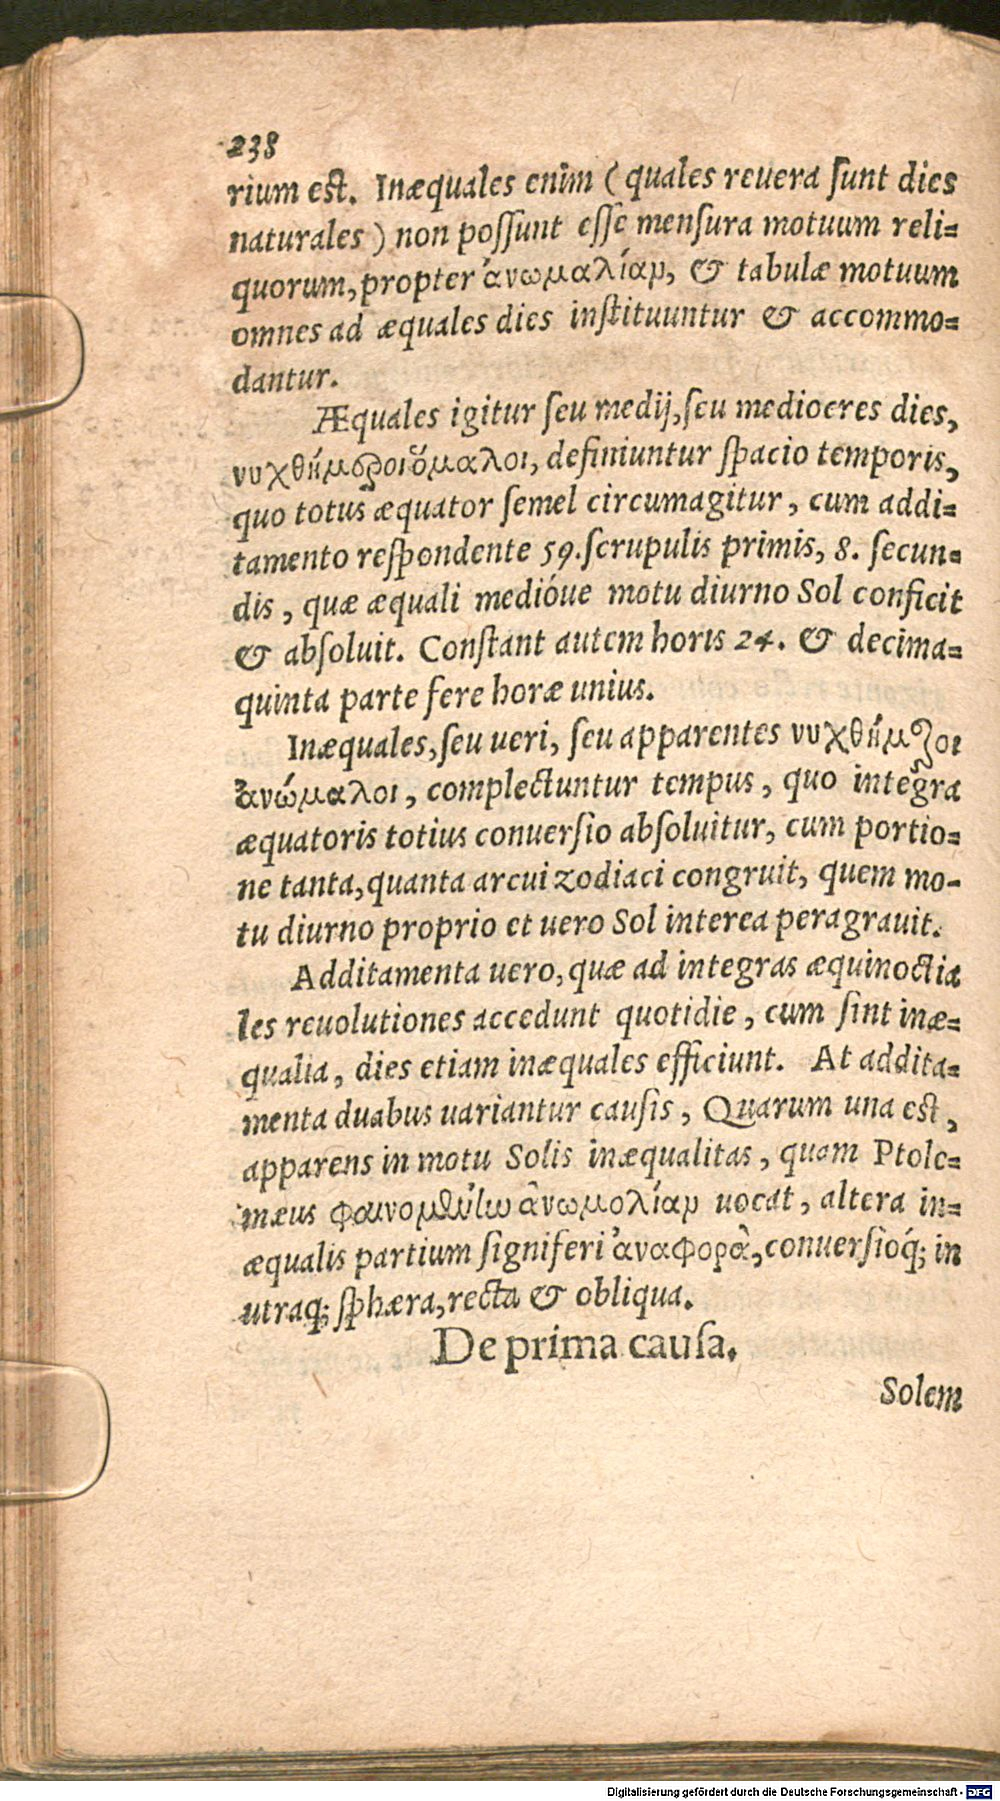 238
rium eſt. Inæquales enim ( quales reuera ſunt dies
naturales ) non poſſunt eſſe menſura motuum reli=
quorum, propter ἀνωμαλίαμ, & tabulæ motuum
omnes ad æquales dies inſtituuntur & accommo=
dantur.
Æquales igitur ſeu medij, ſeu mediocres dies,
νυχθήμεροι ὁμαλοι, definiuntur ſpacio temporis,
quo totus æquator ſemel circumagitur, cum addi=
tamento reſpondente 59. ſcrupulis primis, 8. ſecun=
dis, quæ æquali medióue motu diurno Sol conficit
& abſoluit. Conſtant autem horis 24. & decima=
quinta parte fere horæ unius.
Inæquales, ſeu ueri, ſeu apparentes νυχθήμεροι
ἀνώμαλοι, complectuntur tempus, quo integra
æquatoris totius conuerſio abſoluitur, cum portio=
ne tanta, quanta arcui zodiaci congruit, quem mo-
tu diurno proprio et uero Sol interea peragrauit.
Additamenta uero, quæ ad integras æquinoctia
les reuolutiones accedunt quotidie, cum ſint inæ=
qualia, dies etiam inæquales efficiunt. At addita=
menta duabus uariantur cauſis, Quarum una eſt,
apparens in motu Solis inæqualitas, quam Ptole=
mæus φαινομένην ἀνωμολίαμ uocat, altera in=
æqualis partium ſigniferi ἀναφορὰ, conuerſioq́; in
utraq; ſphæra, recta & obliqua.
De prima cauſa.
Solem
Digitalisierung gefördert durch die Deutsche Forschungsgemeinschaft - DFG